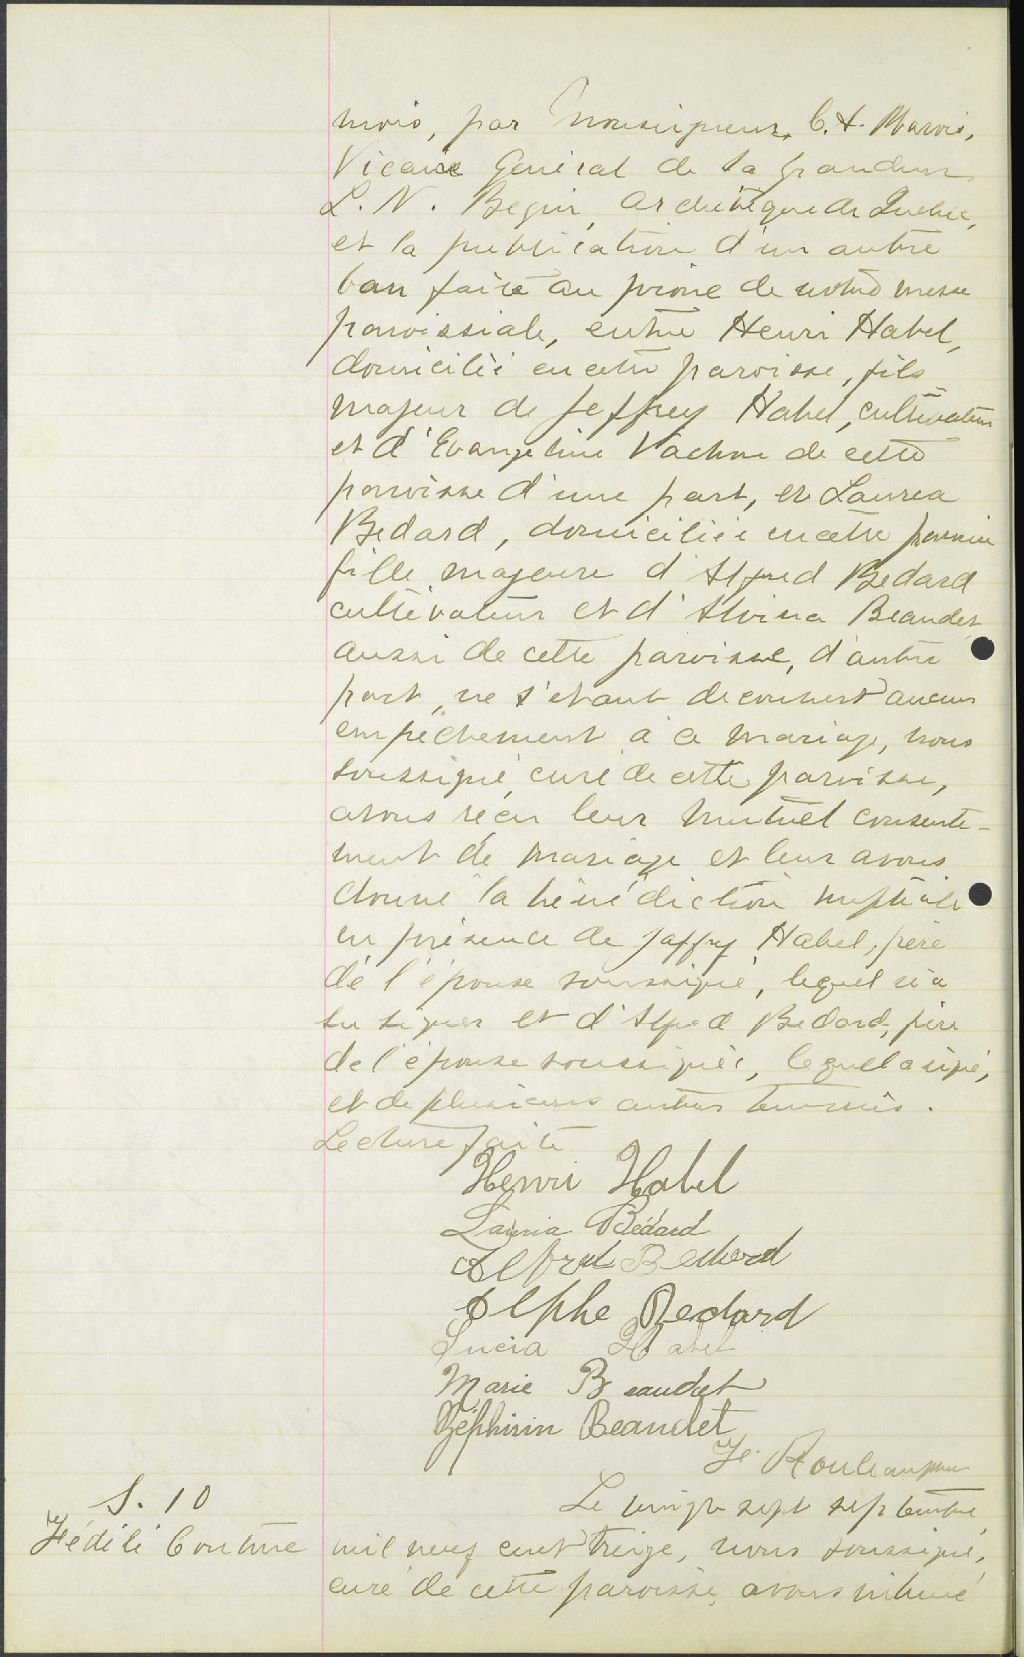 mois, par Monseigneur, C. A. Marois,
Vicaire Général de Sa Grandeur
L. N. Begin, Archevêque de Québec,
et la publication d'un autre
ban faite au prône de notre messe
paroissiale, entre Henri Habel,
domicilié en cette paroisse, fils
majeur de Jeffrey Habel, cultivateur
et d'Evangeline Vachon de cette
paroisse d'une part, et Laurea
Bedard, domiciliée en cette paroisse
fille majeure d'Alfred Bedard
cultivateur et d'Alvina Beaudet
aussi de cette paroisse, d'autre
part, ne s'étant decouvert aucun
empêchement à ce mariage, nous
soussigné, curé de cette paroisse,
avons reçu leur mutuel consente-
ment de mariage et leur avons
donné la bénédiction nuptiale
en présence de Jaffry Habel, père
de l'épouse soussigné, lequel n'a
su signer et d'Alfred Bedard, père
de l'épouse soussignée, lequel a signé,
et de plusieurs autres temoins.
Lecture faite
Henri Habel
Bédard
Alfred Bedard
Alphe Bedard
Lucia Habel
Marie Beaudet
Zéphirin Beaudet
Rouleau ptre
S. 10 Le vingt sept septembre,
Fédéli Couture mil neuf cent treize, nous soussigné,
curé de cette paroisse, avons inhumé